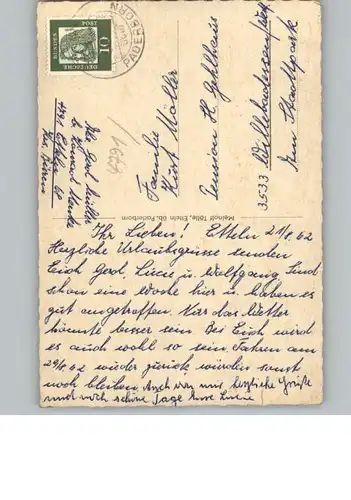 Ihr Lieben! Etteln 21/8.62
Herzliche Urlaubsgrüsse senden
Euch Gerd, Lucie u. Wolfgang. Sind
schon eine Woche hier u. haben es
gut angetroffen. Nur das Wetter
könnte besser sein. Bei Euch wird
es auch wohl so sein. Fahren am
29/8.62 wieder zurück würden sonst
noch bleiben. Auch von mir herzliche Grüße
und noch schöne Tage Eure
Familie
Kurt Möller
Pension H.
3533 Willebadessen
Am Stadtpark
4791 Etteln
4791
PADERBORN
DEUTSCHE
BUNDESPOST
10
Meinolf Tölle, Etteln üb. Paderborn